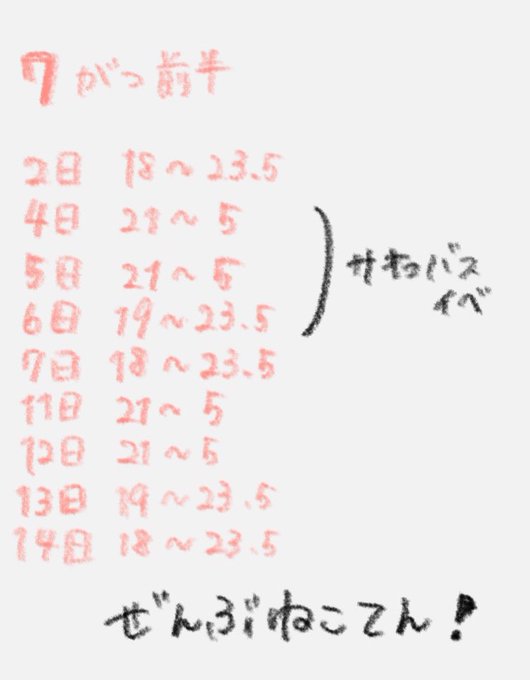 7がつ前半
2日 18～23.5
4日 21～5
5日 21～5
6日 19～23.5
7日 18～23.5
11日 21～5
12日 21～5
13日 19～23.5
14日 18～23.5
サキュバス
イベ
ぜんぶねこてん!